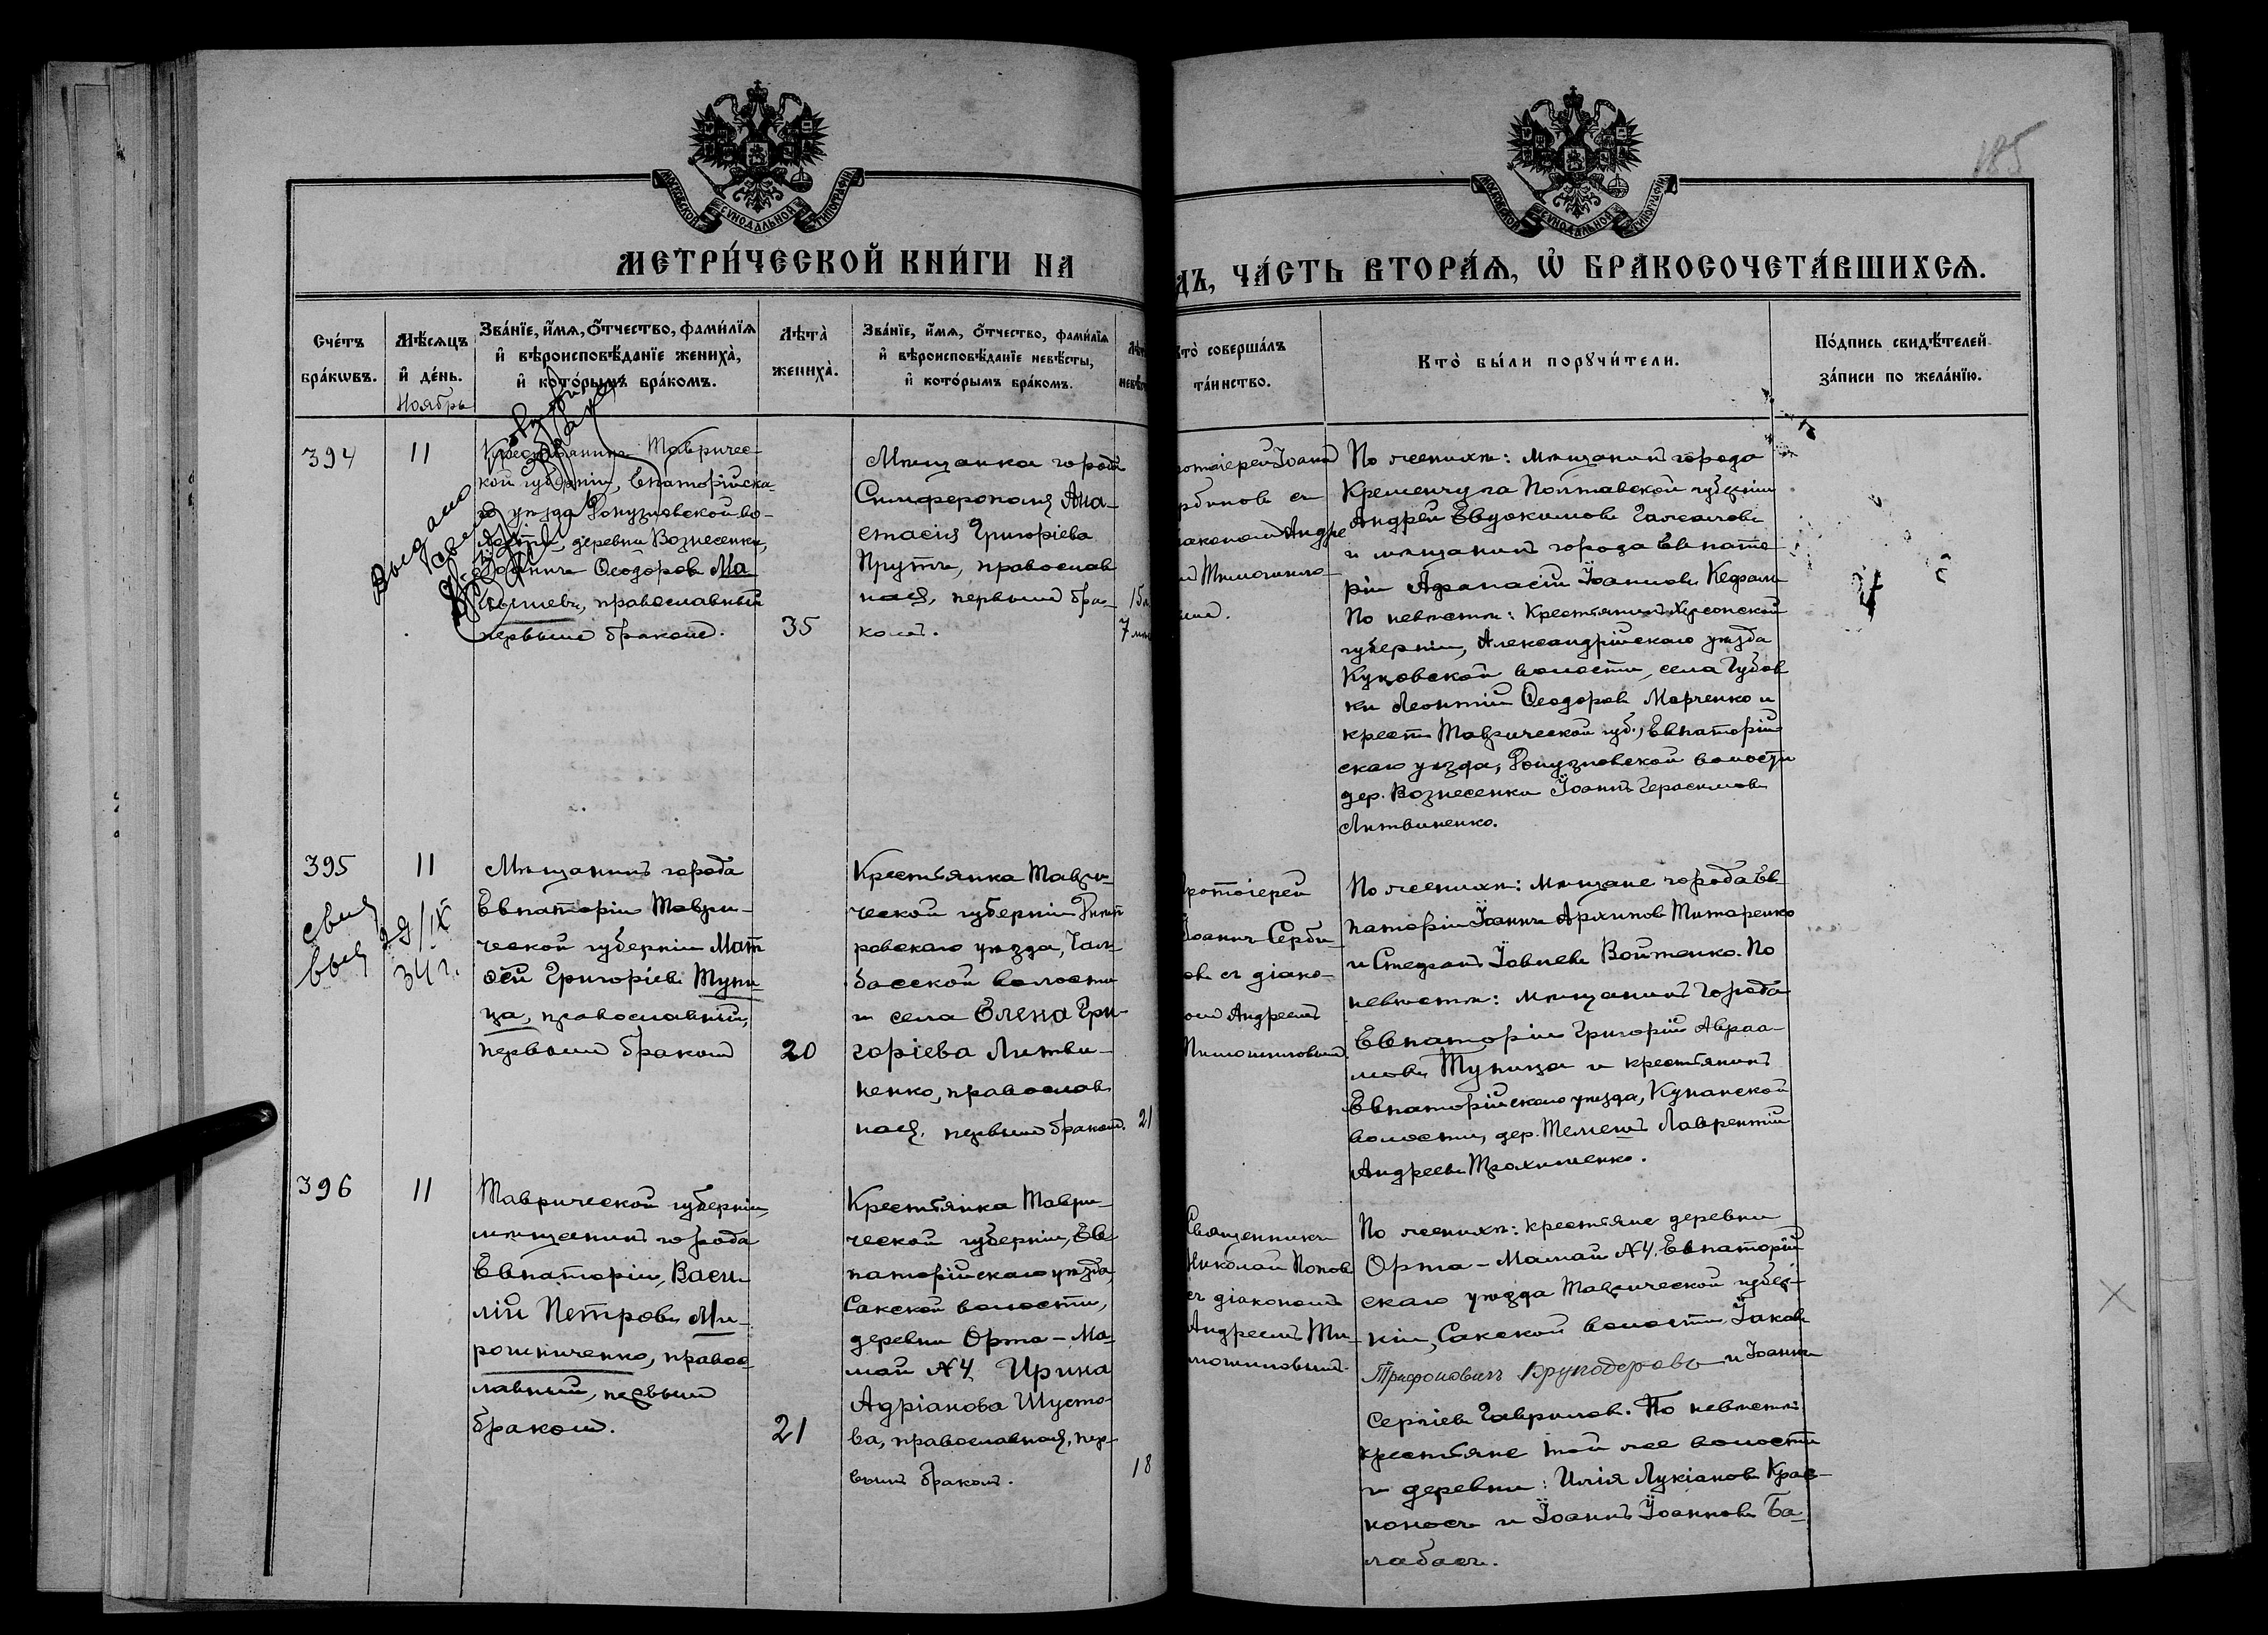 185
МОСКОВСКОЙ СѴНОДАЛЬНОЙ ТИПОГРАФІИ
МОСКОВСКОЙ СѴНОДАЛЬНОЙ ТИПОГРАФІИ
МЕТРИ́ЧЕСКОЙ КНИ́ГИ НА
ДЪ, ЧА́СТЬ ВТОРА́Ѧ, Ѡ҆ БРАКОСОЧЕТА́ВШИХСѦ.
Сче́тъ
бра́кѡвъ.
Мѣ́сяцъ
и҆ де́нь.
Ноябрь
Зва́нїе, и҆́мѧ, ѻ҆́тчество, фами́лїѧ
и҆ вѣроисповѣ́данїе жениха̀,
и҆ кото́рымъ бра́комъ.
Лѣта̀
жениха̀.
Зва́нїе, и҆́мѧ, ѻ҆́тчество, фами́лїѧ
и҆ вѣроисповѣ́данїе невѣ́сты,
и҆ кото́рымъ бра́комъ.
Кто̀ соверша́лъ
та́инство.
Кто̀ бы́ли порꙋчи́тели.
По́дпись свидѣ́телей
за́писи по жела́нїю.
394
11
Крестьянинъ Тавричес-
кой губерніи, Евпаторійска-
го уѣзда Донузлавской во-
лости, деревни Вознесенки,
Іоаннъ Ѳеодоровъ Ма
православный
первымъ бракомъ.
Выдано
35
Мѣщанка города
Симферополя Ана-
стасія Григоріева
Прутъ, православ
ная, первымъ бра-
комъ.
15 л
7 мѣс
ротоіерей Іоаннъ
рбиновъ съ
іакономъ Андре
мъ Тимошино-
вым.
По женихѣ: мѣщанинъ города
Кременчуга Полтавской губерніи
Андрей Евдокимовъ
и мѣщанинъ города Евпато
ріи Афанасій Іоанновъ Кефали
По невѣстѣ: Крестьянинъ Херсонской
губерніи, Александрійскаго уѣзда
волости, села Губов
ки Леонтій Ѳеодоровъ Марченко и
крест. Таврической губ., Евпаторій
скаго уѣзда, Донузлавской волости
дер. Вознесенки Іоаннъ Герасимовъ
Литвиненко.
395
11
свид
выд
29/IX
34 г.
Мѣщанинъ города
Евпаторіи Таври-
ческой губерніи Мат
ѳей Григоріевъ Тупи-
ца, православный,
первымъ бракомъ
20
Крестьянка Таври-
ческой губерніи Днѣп
ровскаго уѣзда, Чал-
басской волости
и села Елена Гри-
горіева Литви-
ненко, православ
ная, первымъ бракомъ.
21
ротоіерей
Іоаннъ Серби-
овъ съ діако-
омъ Андреемъ
Тимошиновымъ.
По женихѣ: мѣщане города Ев-
паторіи Іоаннъ Архиповъ Титаренко
и Стефанъ Іовлевъ Войтенко. По
невѣстѣ: мѣщанинъ города
Евпаторіи Григорій Авраа-
мовъ Тупица и крестьянинъ
Евпаторійскаго уѣзда, Курманской
волости, дер. Темешъ Лаврентій
Андреевъ Трохименко.
396
11
Таврической губерніи,
мѣщанинъ города
Евпаторіи, Васи-
лій Петровъ Ми-
рошниченко, правос-
лавный, первымъ
бракомъ.
21
Крестьянка Таври-
ческой губерніи, Ев
паторійскаго уѣзда,
Сакской волости,
деревни Орта-Ма-
май №4 Ирина
Адріанова Шусто-
ва, православная, пер-
вымъ бракомъ.
18
Священникъ
Николай Поповъ
съ діакономъ
Андреемъ Ти-
мошиновымъ.
По женихѣ: крестьяне деревни
Орта-Мамай №4, Евпаторій
скаго уѣзда Таврической губер-
ніи, Сакской волости, Іаковъ
Трифоновичъ Вруподеровъ и Іоаннъ
Сергіевъ Гавриловъ. По невѣстѣ
крестьяне той же волости
и деревни: Илія Лукіановъ Крас-
ноносъ и Іоаннъ Іоанновъ Ба-
лабасъ.